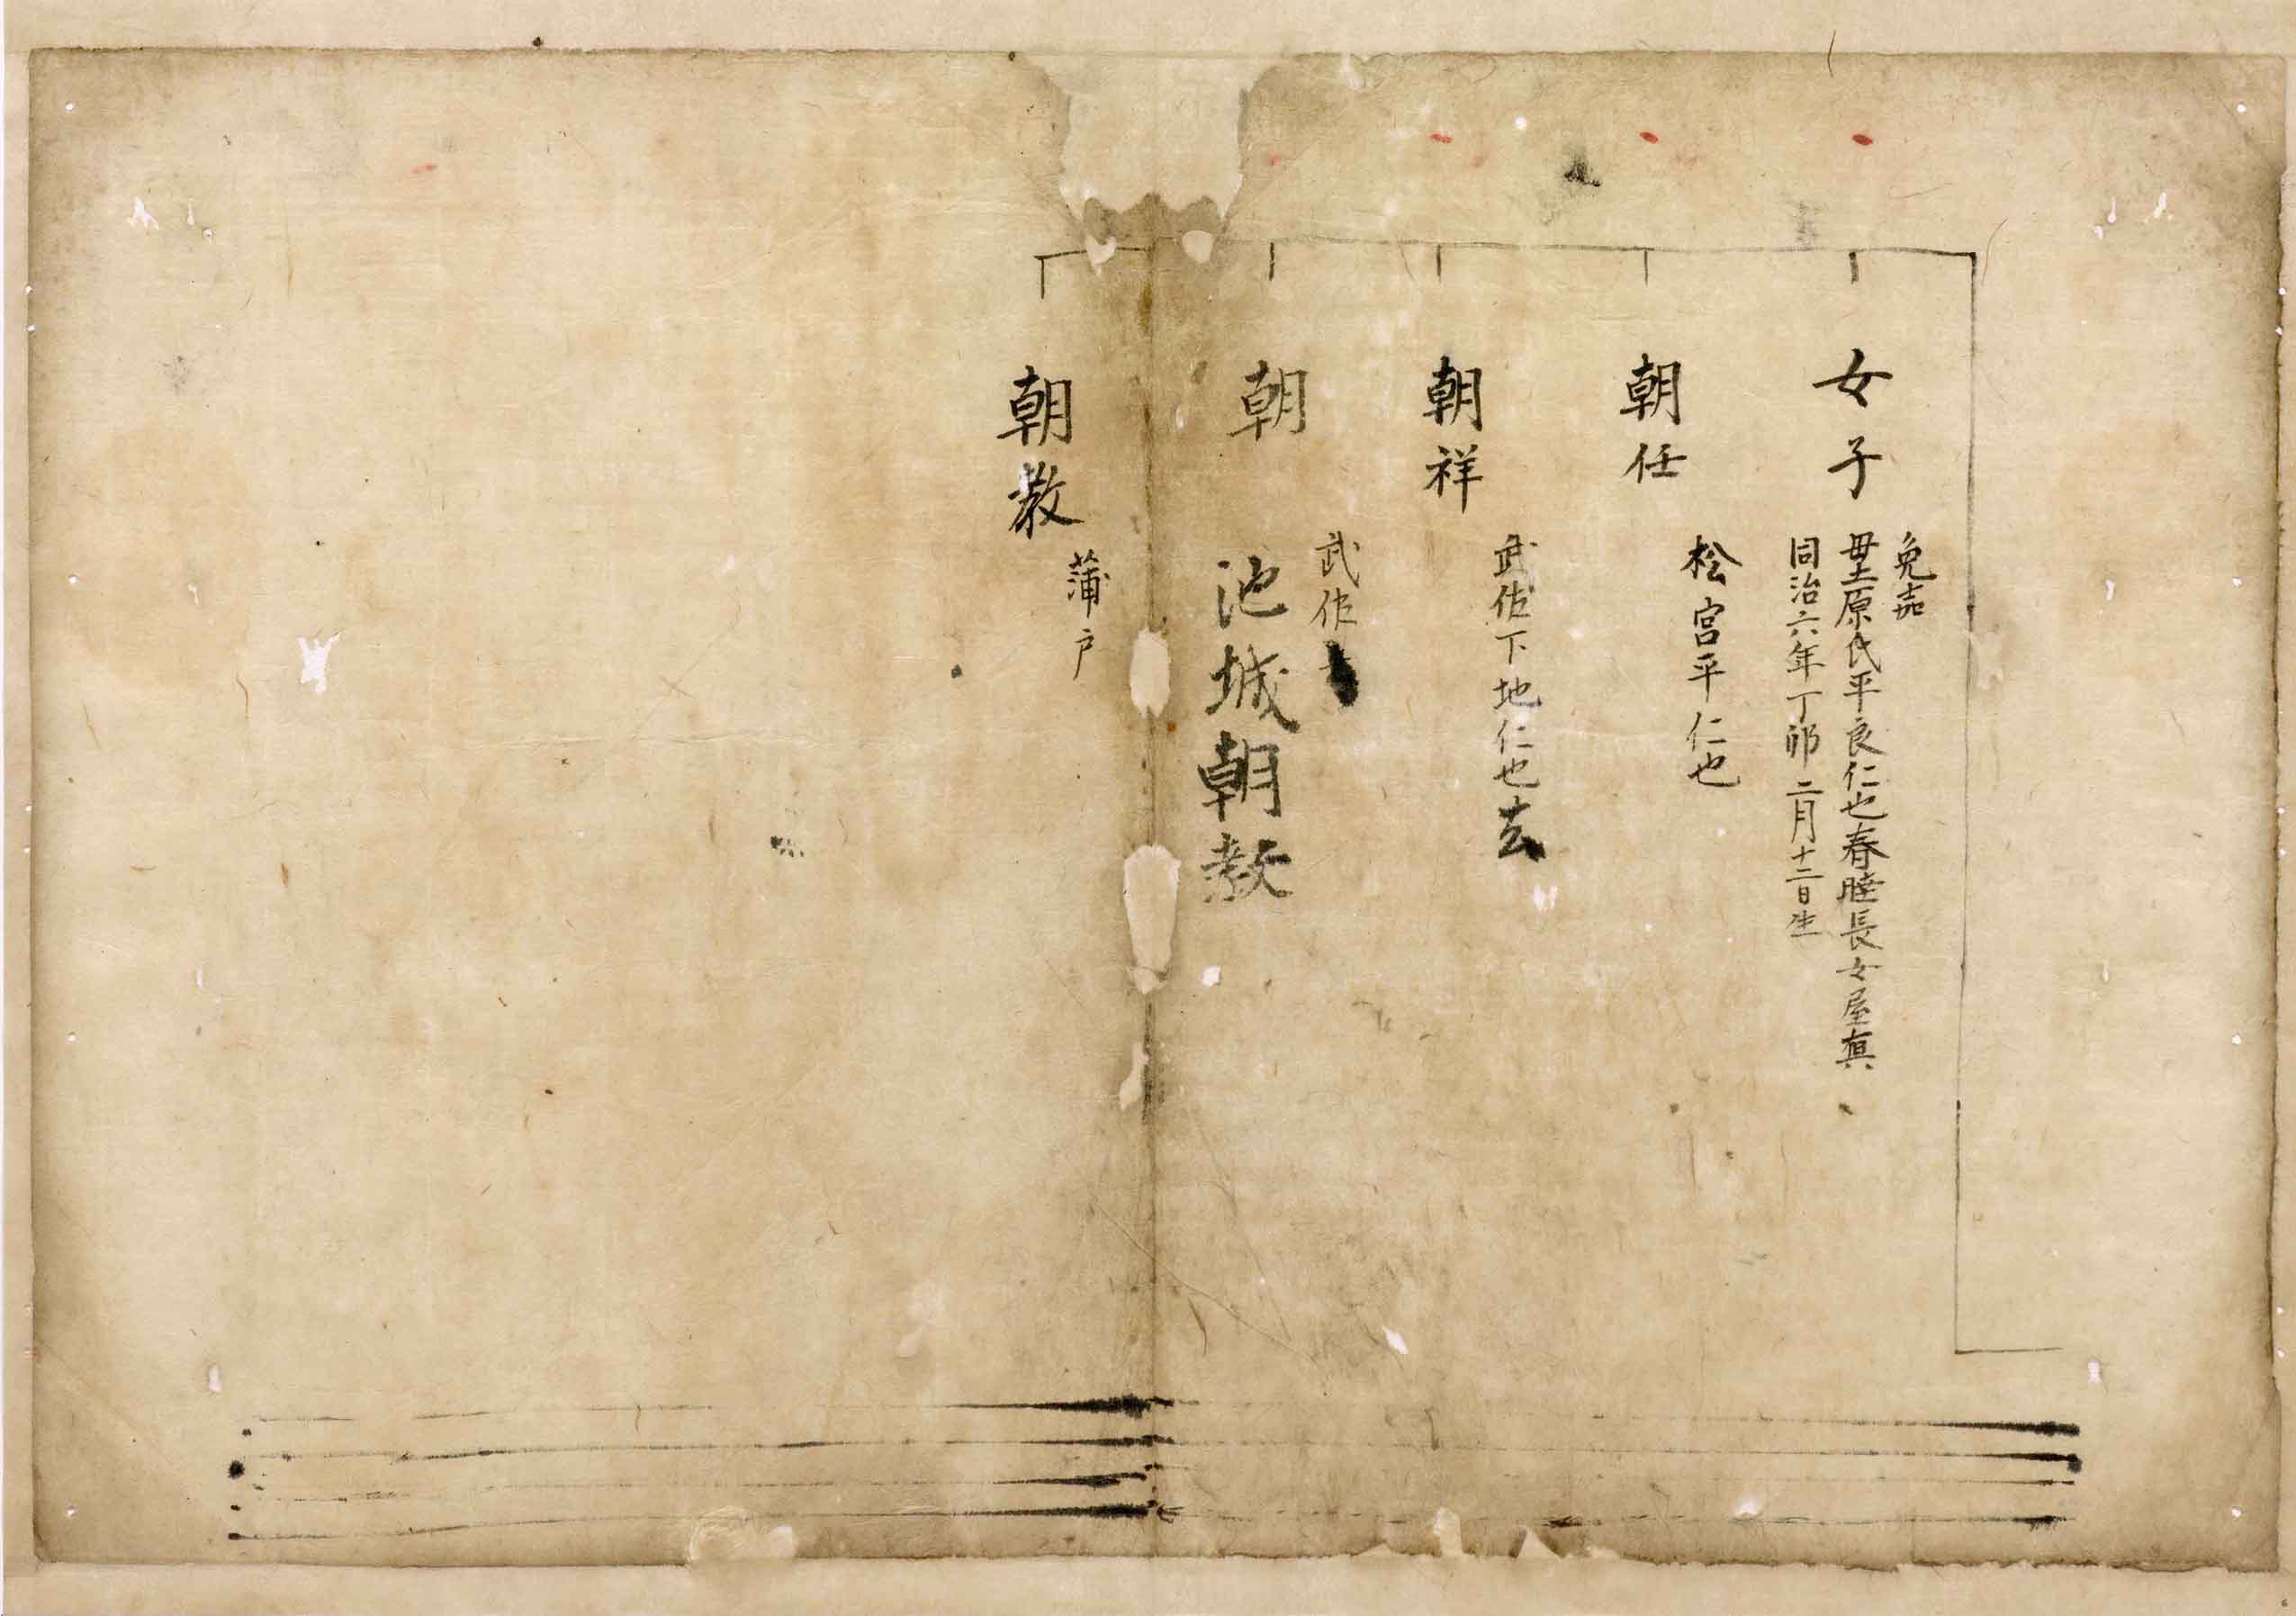 女子
免嘉
毋土原氏平良仁也春睦長女屋真
同治六年丁卯二月十二日生
朝任
松宮平仁也
朝祥
武佐下地仁也去
朝
武佐
池城朝教
朝教
蒲戸